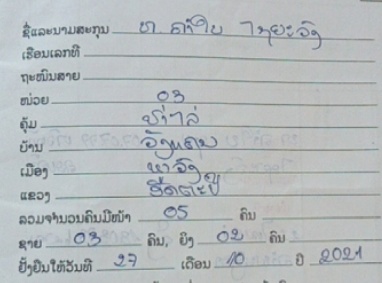 ຊື່ແລະນາມສະກຸນ ທ. ຄຳໃບ ໄຊຍະວົງ
ເຮືອນເລກທີ
ຖະໜົນສາຍ
ໜ່ວຍ 03
ຄຸ້ມ
ບ້ານ
ເມືອງ
ແຂວງ ອັດຕະປື
ລວມຈຳນວນຄົນມີໜ້າ 05 ຄົນ
ຊາຍ 03 ຄົນ, ຍິງ 02 ຄົນ
ຢັ້ງຢືນໃຫ້ວັນທີ 27 ເດືອນ 10 ປີ 2021